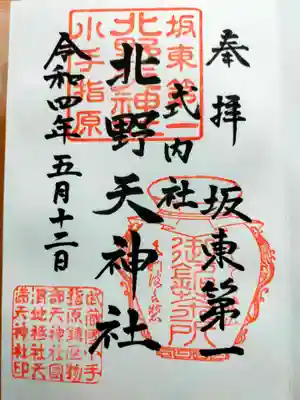 奉拝
坂東第一
式内社
北野天神社
令和四年五月十二日
坂東第一
北野天神
小手指原